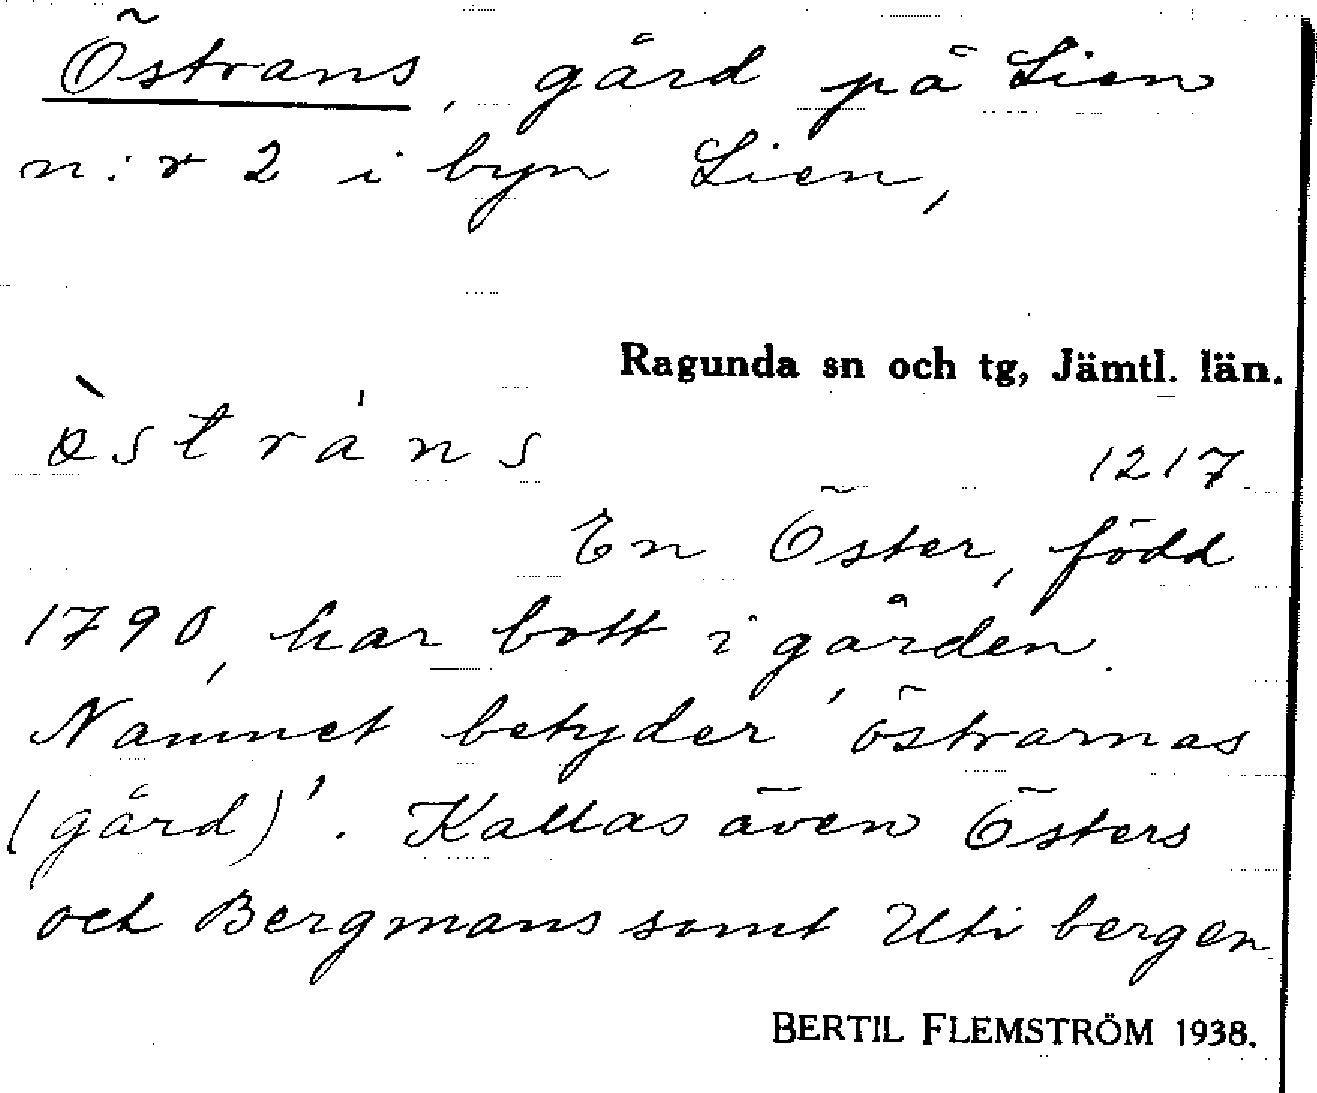 Östrans, gård på Lien
n:r 2 i byn Lien,
Ragunda sn och tg, Jämtl. län.
östráns
1217
En Öster, född
1790, har bott i gården.
Namnet betyder 'östrarnas
(gård)'. Kallas även Östers
och Bergmans samt Uti bergen
BERTIL FLEMSTRÖM 1938.